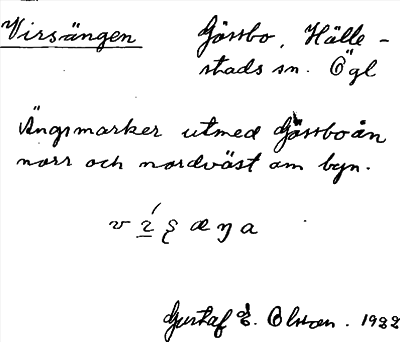 Virsängen Gåssbo, Hälle-
stads sn. Ögl
Ängsmarker utmed Gåssboån
norr och nordväst om byn.
Gustaf E. Olsson. 1922